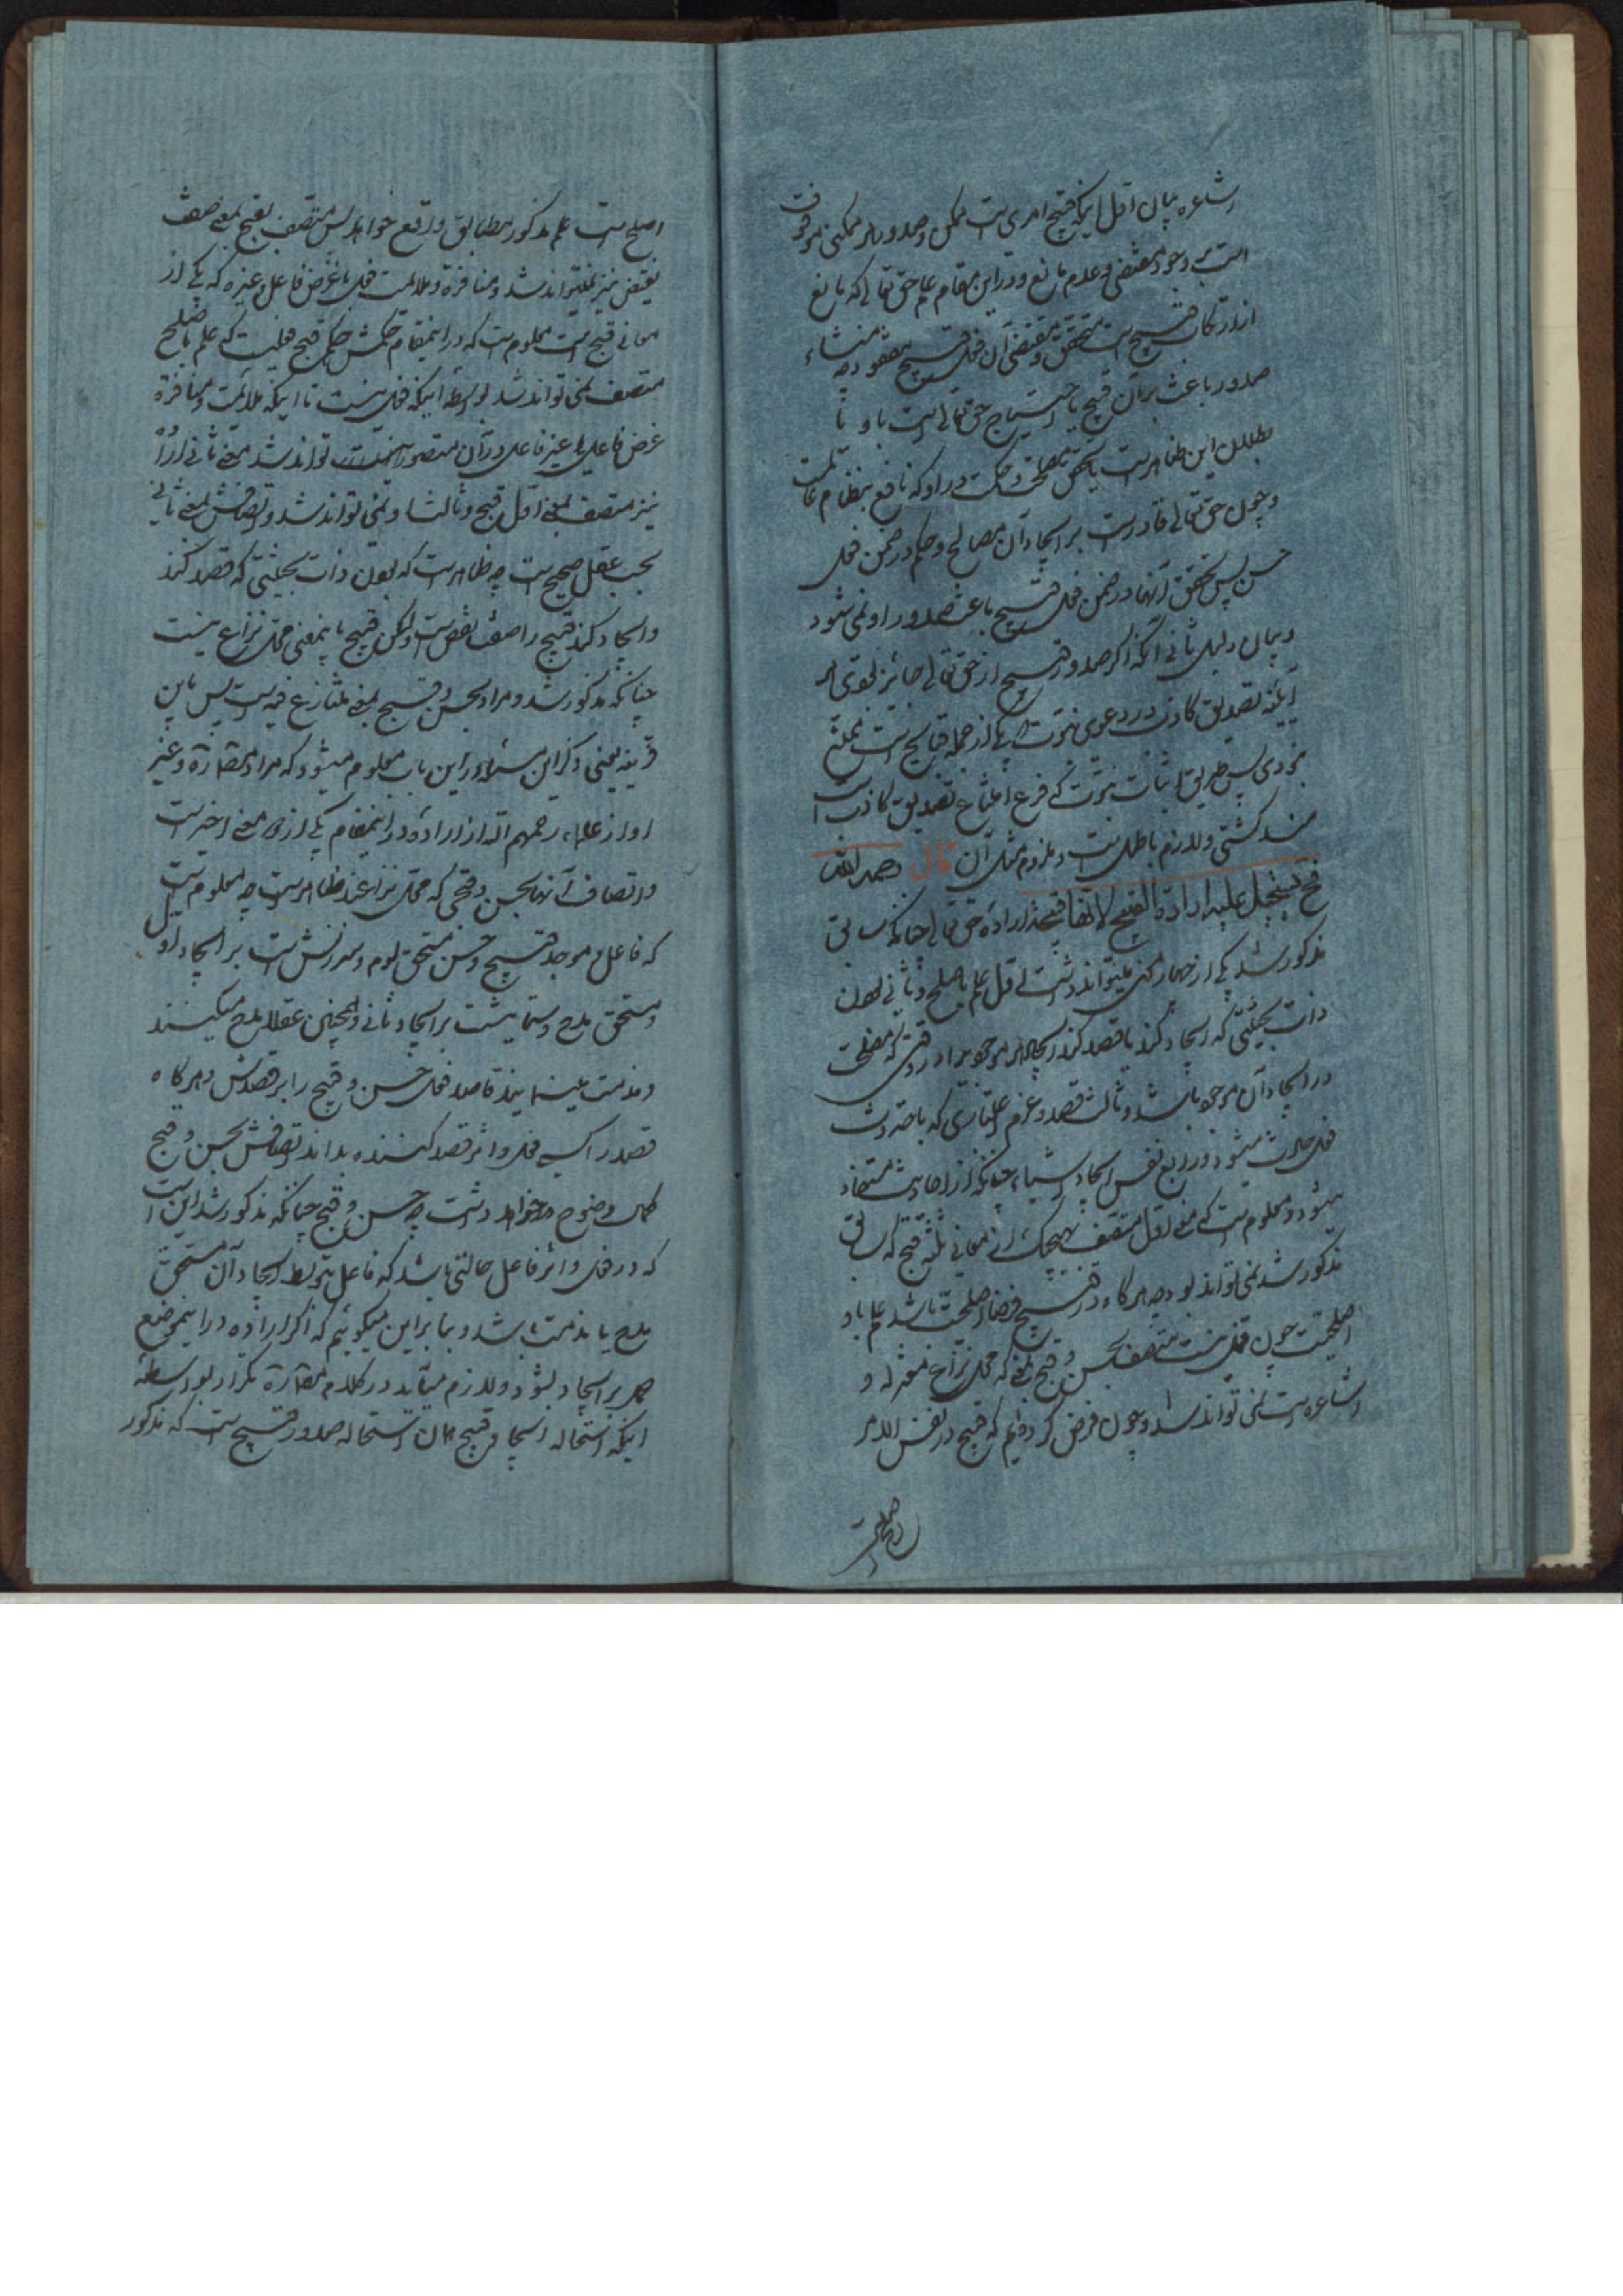 اشاعره بیان اول اینکه قبیح امریست ممکن و صدور هر ممکنی موقوف
است بر وجود مقتضی و عدم مانع و در این مقام علم حق تعالی که مانع
از ارتکاب قبیح است متحقق و مقتضی آن فعل قبیح مفقود چه منشاء
صدور باعث بر آن قبیح یا احتیاج حق تعالی است باو و تا
بطلان این ظاهر است یا تحقق مصلحت و حکمت در او که نافع بنظام
و چون حق تعالی قادر است بر ایجاد آن مصالح و حکم در ضمن فعل
حسن پس تحقق آنها در ضمن فعل قبیح باعث صدور او نمی شود
و بیان دلیل ثانی آنکه اگر صدور قبیح از حق تعالی جایز بودی هر
آینه تصدیق کاذب در دعوی نبوت که یکی از جمله قبایح است ممتنع
نبودی پس طریق اثبات نبوت که فرع امتناع تصدیق کاذب است
منسد گشتی و لازم باطل است و ملزوم مثل آن قال رحمه الله
فح یستحیل علیه ارادة القبیح لانها قبیحة اراده حق تعالی چنانکه سابق
مذکور شد یکی از چهار معنی میتواند داشت اول علم باصلح و ثانی بودن
ذات بحیثیتی که ایجاد کند یا قصد کند ایجاد هر موجود را در وقتی که مصلحت
در ایجاد آن موجود باشد و ثالث قصد و عزم که باحدوث
فعل حادث میشود و رابع نفس ایجاد اشیاء چنانکه از احادیث مستفاد
میشود و معلوم است که معنی اول متصف بهیچیک از معانی ثلثه قبح که سابق
مذکور شد نمی تواند بود چه هرگاه در قبیح فرضا اصلحیت باشد علم باو
اصلحیت چون فعل نیست متصف بحسن و قبح بمعنی که محل نزاع معتزله و
اشاعره است نمی تواند شد و چون فرض کرده ایم که قبیح در نفس الامر
اصلح است
اصلح است علم مذکور مطابق واقع خواهد بود پس متصف بقبح بمعنی صفت
نقص نیز نمیتواند شد و منافرة و ملائمت فعل با غرض فاعل و غیره که یکی از
معانی قبح است معلوم است که در اینمقام حکمش حکم قبح فعلیست که علم باصلح
متصف نمی تواند شد بواسطه اینکه فعل نیست تا اینکه ملائمت و منافرة
غرض فاعل یا غیر فاعل در آن متصور تواند شد معنی ثانی اراده
نیز متصف بمعنی اول قبح و ثالثا و نمی تواند شد و اتصافش بمعنی ثانی
بحسب عقل صحیح است چه ظاهر است که بودن ذات بحیثیتی که قصد کند
و ایجاد کند قبیح را صفت نقص است و لیکن قبح باینمعنی محل نزاع نیست
چنانکه مذکور شد و مراد بحسن و قبح بمعنی متنازع فیه است پس باین
قرینه یعنی ذکر این مسئله در این باب معلوم میشود که مراد مصنف ره و غیر
او از علماء رحمهم الله از اراده در اینمقام یکی از دو معنی اخیر است
و اتصاف آنها بحسن و قبحی که محل نزاعند ظاهر است چه معلوم است
که فاعل و موجد قبیح و حسن مستحق لوم و سرزنش است بر ایجاد اول
و مستحق مدح و ستایش است بر ایجاد ثانی و همچنین عقلا مدح میکنند
و مذمت مینمایند قاصد فعل حسن و قبیح را بر قصدش و هرگاه
قصد را کسی فعل و اثر قصد کننده بداند اتصافش بحسن و قبح
کمال وضوح خواهد داشت چه حسن و قبح چنانکه مذکور شد این است
که در فعل و اثر فاعل حالتی باشد که فاعل بتوسط ایجاد آن مستحق
مدح یا مذمت باشد و بنا بر این میگوییم که اگر اراده در این موضع
حمل بر ایجاد بشود لازم میآید در کلام مصنف ره تکرار بواسطه
اینکه استحاله ایجاد قبیح همان استحاله صدور قبیح است که مذکور